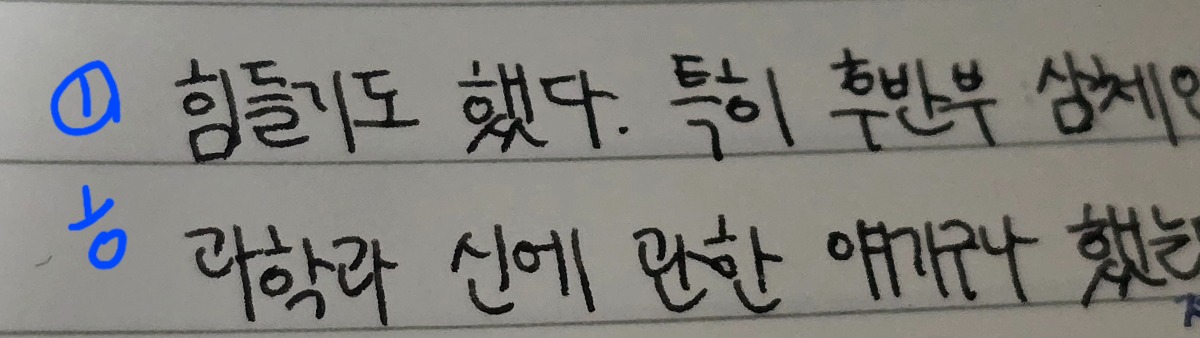 ① 힘들기도 했다. 특히 후반부 삼체인
과학과 신에 관한 얘기구나 했는